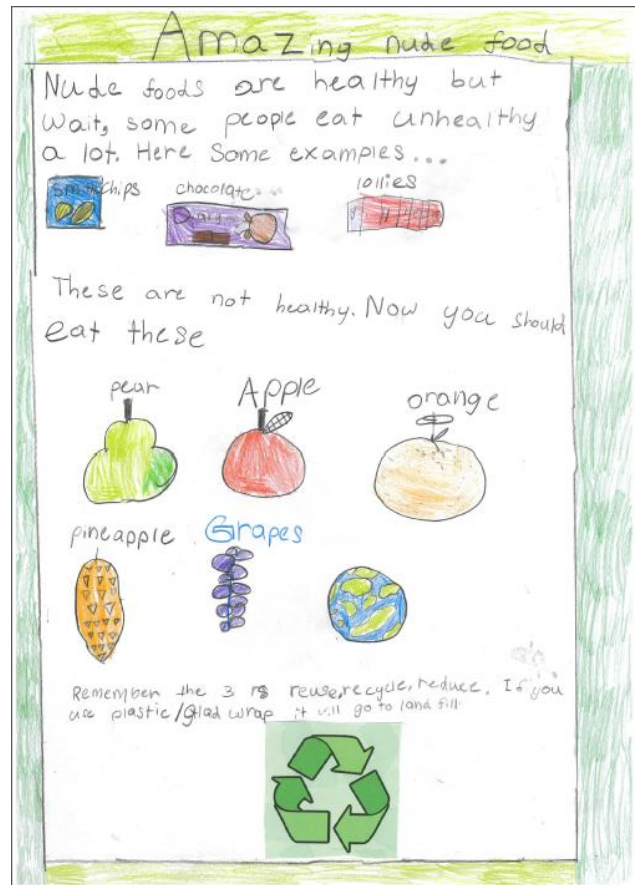 Amazing nude food
Nude foods are healthy but
wait, some people eat unhealthy
a lot. Here Some examples...
chips chocolate lollies
These are not healthy. Now you should
eat these
pear Apple orange
pineapple Grapes
Remember the 3 rs reuse, recycle, reduce. If you
use plastic/Glad wrap it will go to land fill